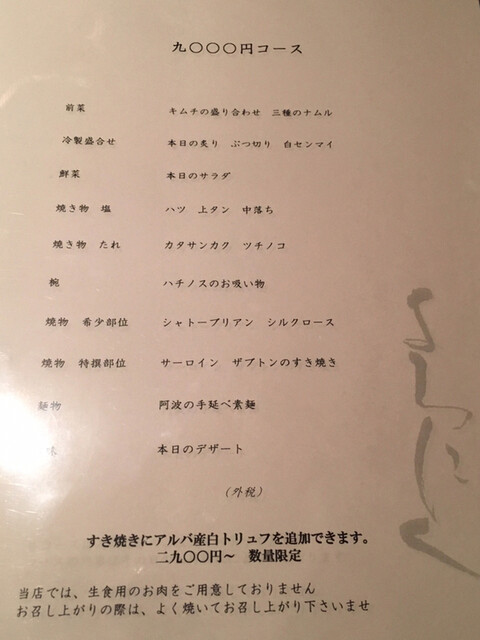 九〇〇〇円コース
前菜 キムチの盛り合わせ 三種のナムル
冷製盛合せ 本日の炙り ぶつ切り 白センマイ
鮮菜 本日のサラダ
焼き物 塩 ハツ 上タン 中落ち
焼き物 たれ カタサンカク ツチノコ
椀 ハチノスのお吸い物
焼物 希少部位 シャトーブリアン シルクロース
焼物 特撰部位 サーロイン ザブトンのすき焼き
麺物 阿波の手延べ素麺
味 本日のデザート
(外税)
すき焼きにアルバ産白トリュフを追加できます。
二九〇〇円～ 数量限定
当店では、生食用のお肉をご用意しておりません
お召し上がりの際は、よく焼いてお召し上がり下さいませ
よろにく